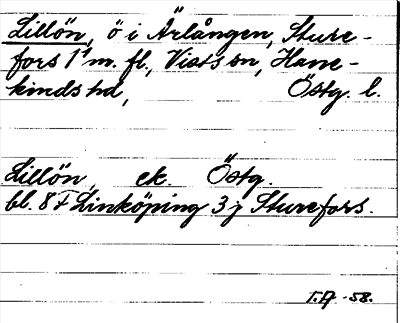 Lillön, ö i Ärlången, Sture-
fors 1¹ m. fl., Vists sn, Hane-
kinds hd, Östg. l.
Lillön, ek. Östg.
bl. 8F Linköping 3 j Sturefors.
-58.